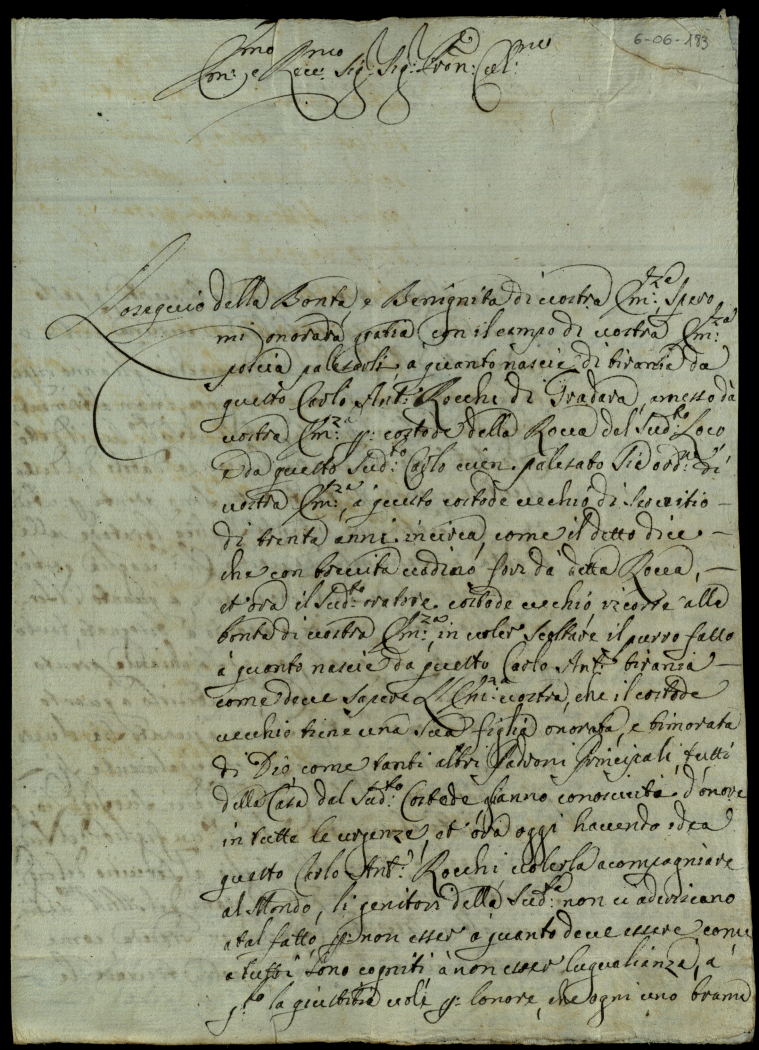 6-06-183
Em:mo e Rev:mo Sig: Sig: Pron: Col:mo
L'osequio della Bonta e Benignità di vostra Em:za Spero
mi onorarà gratia con il campo di vostra Em:za
poscia palesarli, a quanto nascie di tirania da
questo Carlo Ant: Rocchi di Gradara, messo dà
vostra Em:za p: costode della Rocca del Sud:to Loco
e da questo Sud:to Carlo vien palesato Sie ord:ne di
vostra Em:za, a questo costode vecchio di Servitio –
di trenta anni incirca, come il detto dice –
che con brevità vadino fori da detta Rocca, –
et ora il Sud:to oratore costode vecchio ricorre alla
bontà di vostra Em:za, in voler il purro fatto
à quanto nascie da questo Carlo Ant: tirania –
come deve sapere L'Em:za vostra, che il costode
vecchio tiene una Sua figlia onorata, e timorata
di Dio come tanti altri Padroni Principali, tutti
della Casa dal Sud:to Costode hanno conosciuta d'onore
in tutte le urgenze, et ora oggi havendo idea
questo Carlo Ant: Rocchi volerla acompagniare
al Mondo, li genitori della Sud:ta non vi aderiscano
a tal fatto p: non esser a quanto deve essere come
a tutti sono cogniti à non esser lugualianza, à
q:to la giustitia vole p: lonore, che ogni uno brama